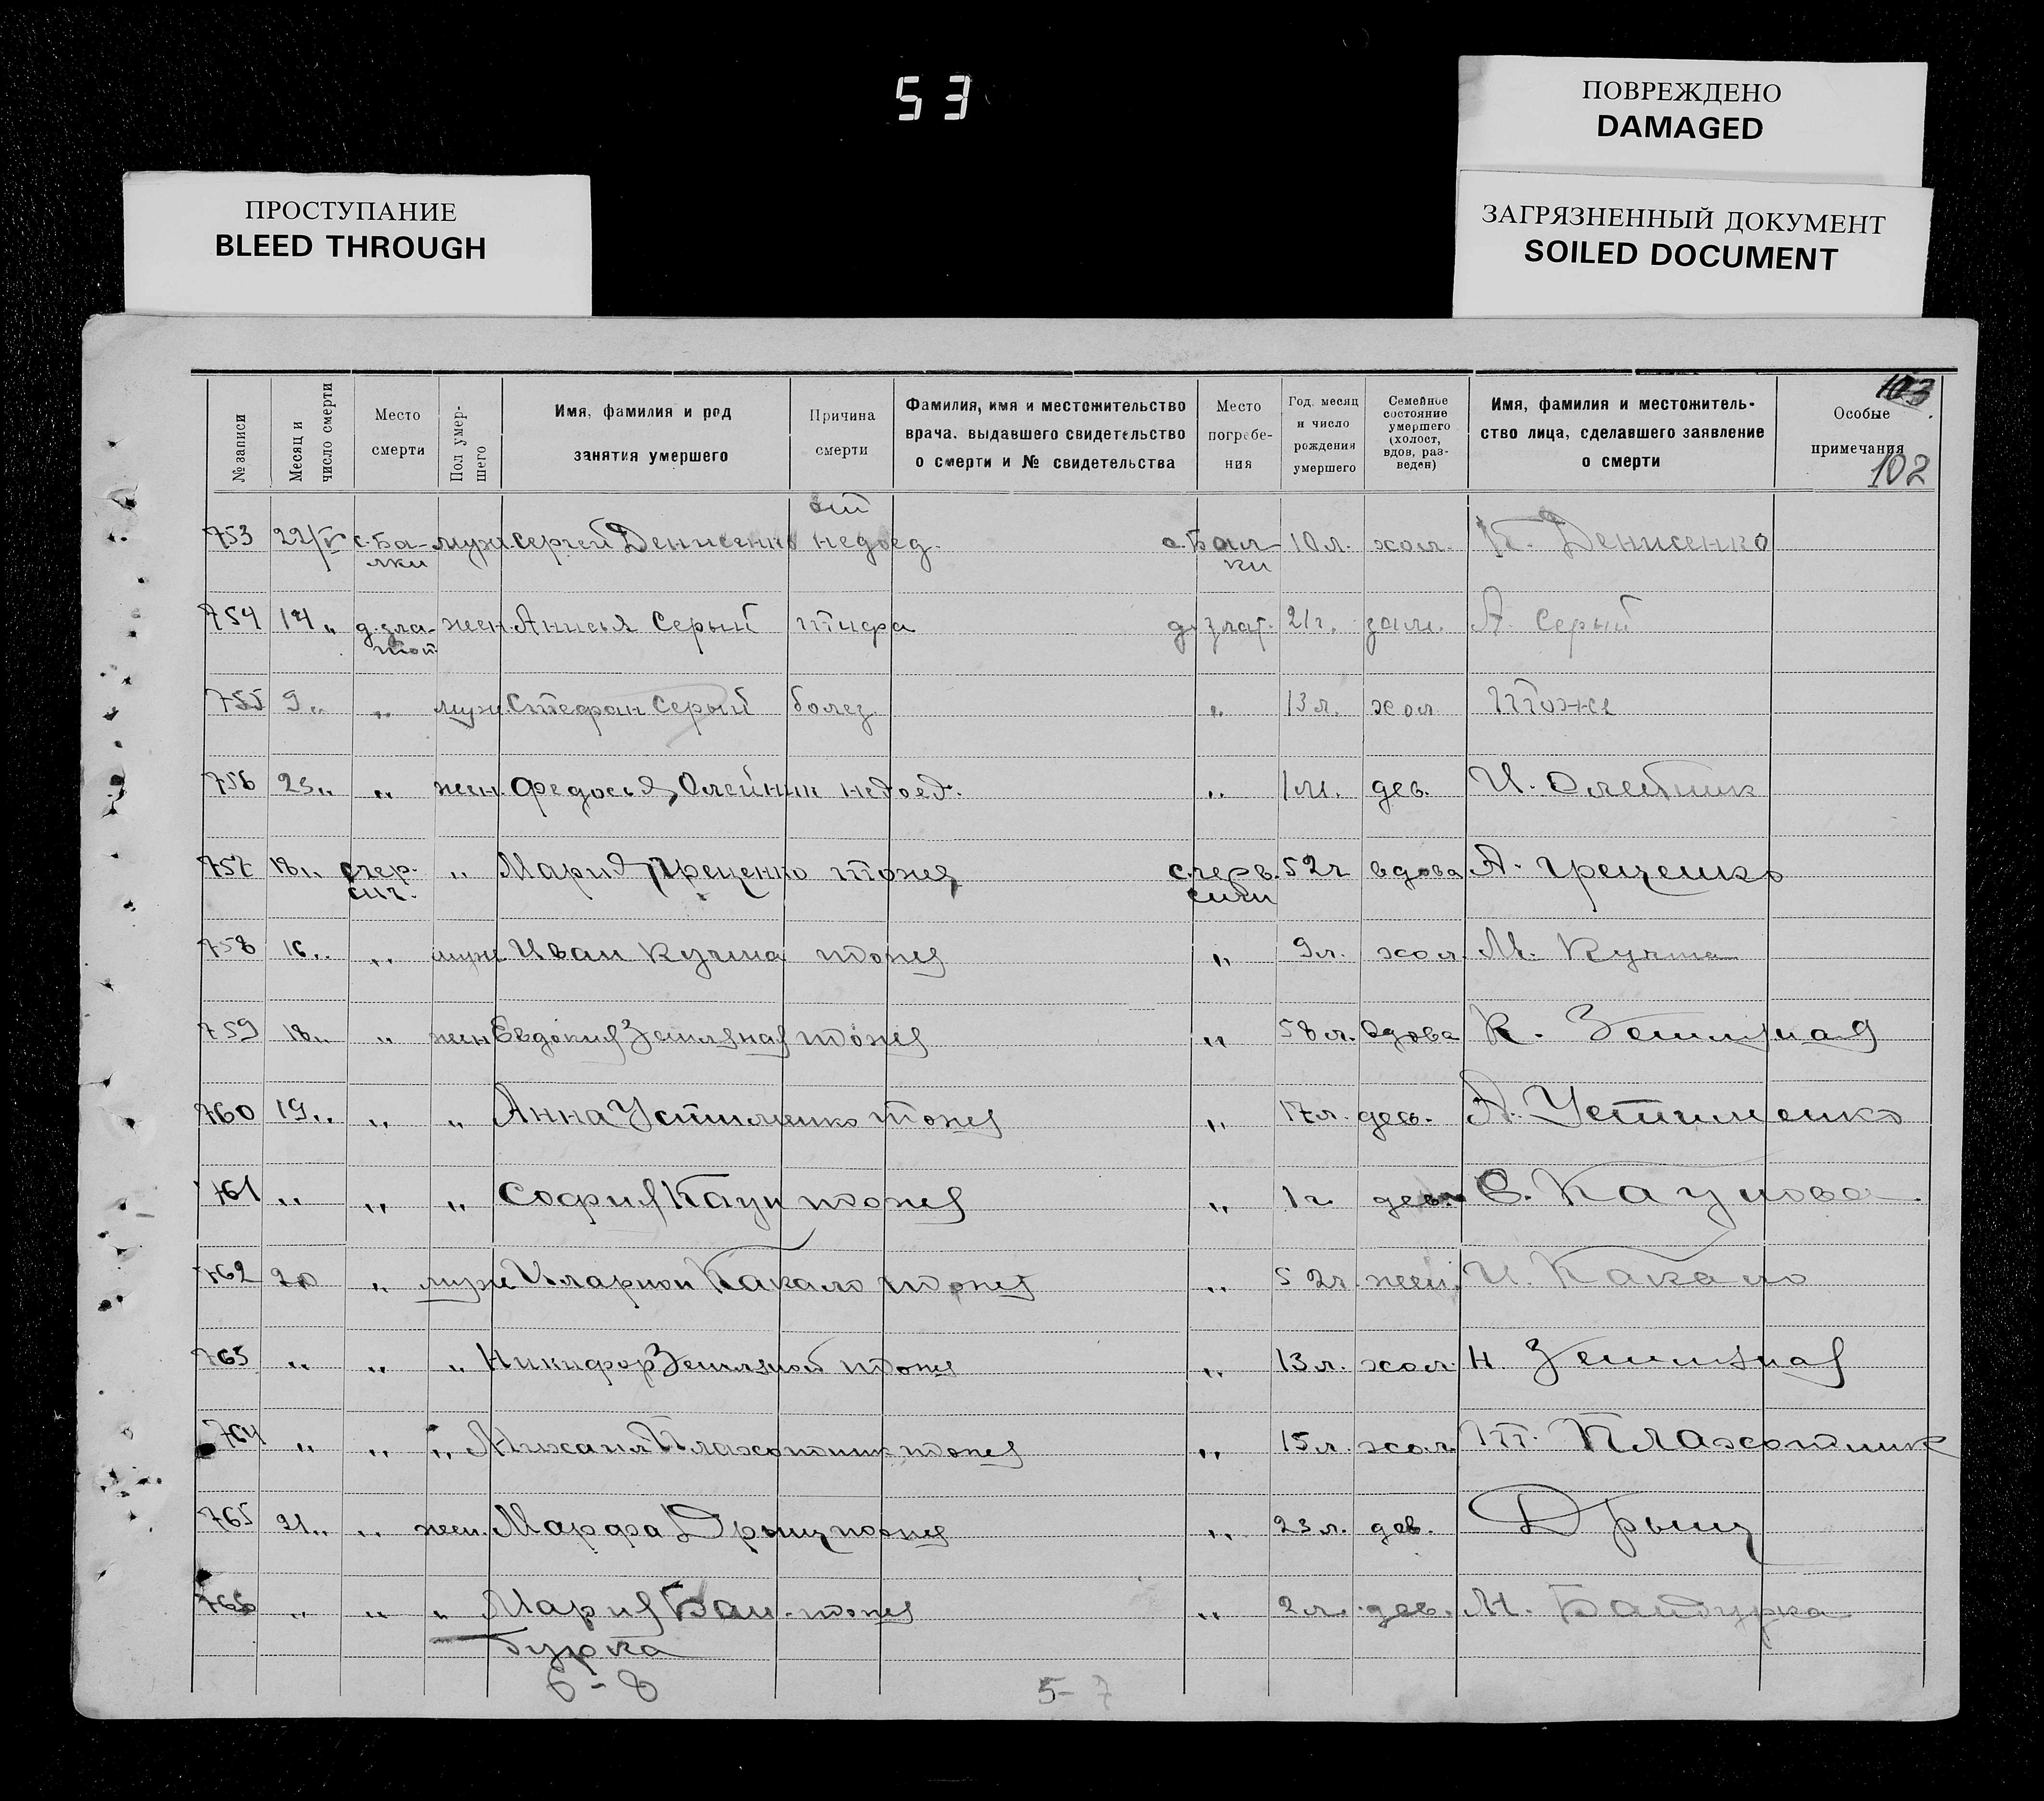 53
ПОВРЕЖДЕНО
DAMAGED
ПРОСТУПАНИЕ
BLEED THROUGH
ЗАГРЯЗНЕННЫЙ ДОКУМЕНТ
SOILED DOCUMENT
103
102
№ записи
Месяц и число смерти
Место смерти
Пол умершего
Имя, фамилия и род занятия умершего
Причина смерти
Фамилия, имя и местожительство врача, выдавшего свидетельство о смерти и № свидетельства
Место погребения
Год, месяц и число рождения умершего
Семейное состояние умершего (холост, вдов, разведен)
Имя, фамилия и местожительство лица, сделавшего заявление о смерти
Особые примечания
от
753 22/V с. Ба- муж Сергей Денисенко недоед. с. Бал- 10 л. хол. К. Денисенко
лки ки
754 14 „ д. Зла- жен. Анисья Серый тифа д. Злат. 21 г. зам. А. Серый
той
755 9 „ „ муж Стефан Серый болез. „ 13 л. хол Тоже
756 23 „ „ жен. Федосья Олейник недоед. „ 1 м. дев. И. Олейник
757 18 „ „ Мария Греценко тоже 52 г вдова А. Греценко
758 16 „ „ муж Иван Кучма тоже „ 9 л. хол М. Кучма
759 18 „ „ жен Евдокия Земляная тоже „ 58 л. вдова К. Земляная
760 19 „ „ „ Анна Устименко тоже „ 17 л. дев. А. Устименко
761 „ „ „ София Каун тоже „ 1 г. дев. С. Каунова
762 20 „ муж Иларион Какало тоже „ 52 г. жен. И. Какало
763 „ „ „ Никифор Земляной тоже „ 13 л. хол. Н. Земляная
764 „ „ „ Михаил Плахотник тоже „ 15 л. хол. Т. Плахотник
765 21 „ „ жен. Марфа Дрыщ тоже „ 23 л. дев. Дрыщ
766 „ „ „ Мария Бай- тоже „ 2 л. дев. М. Байбурка
бурка
6-8 5-7